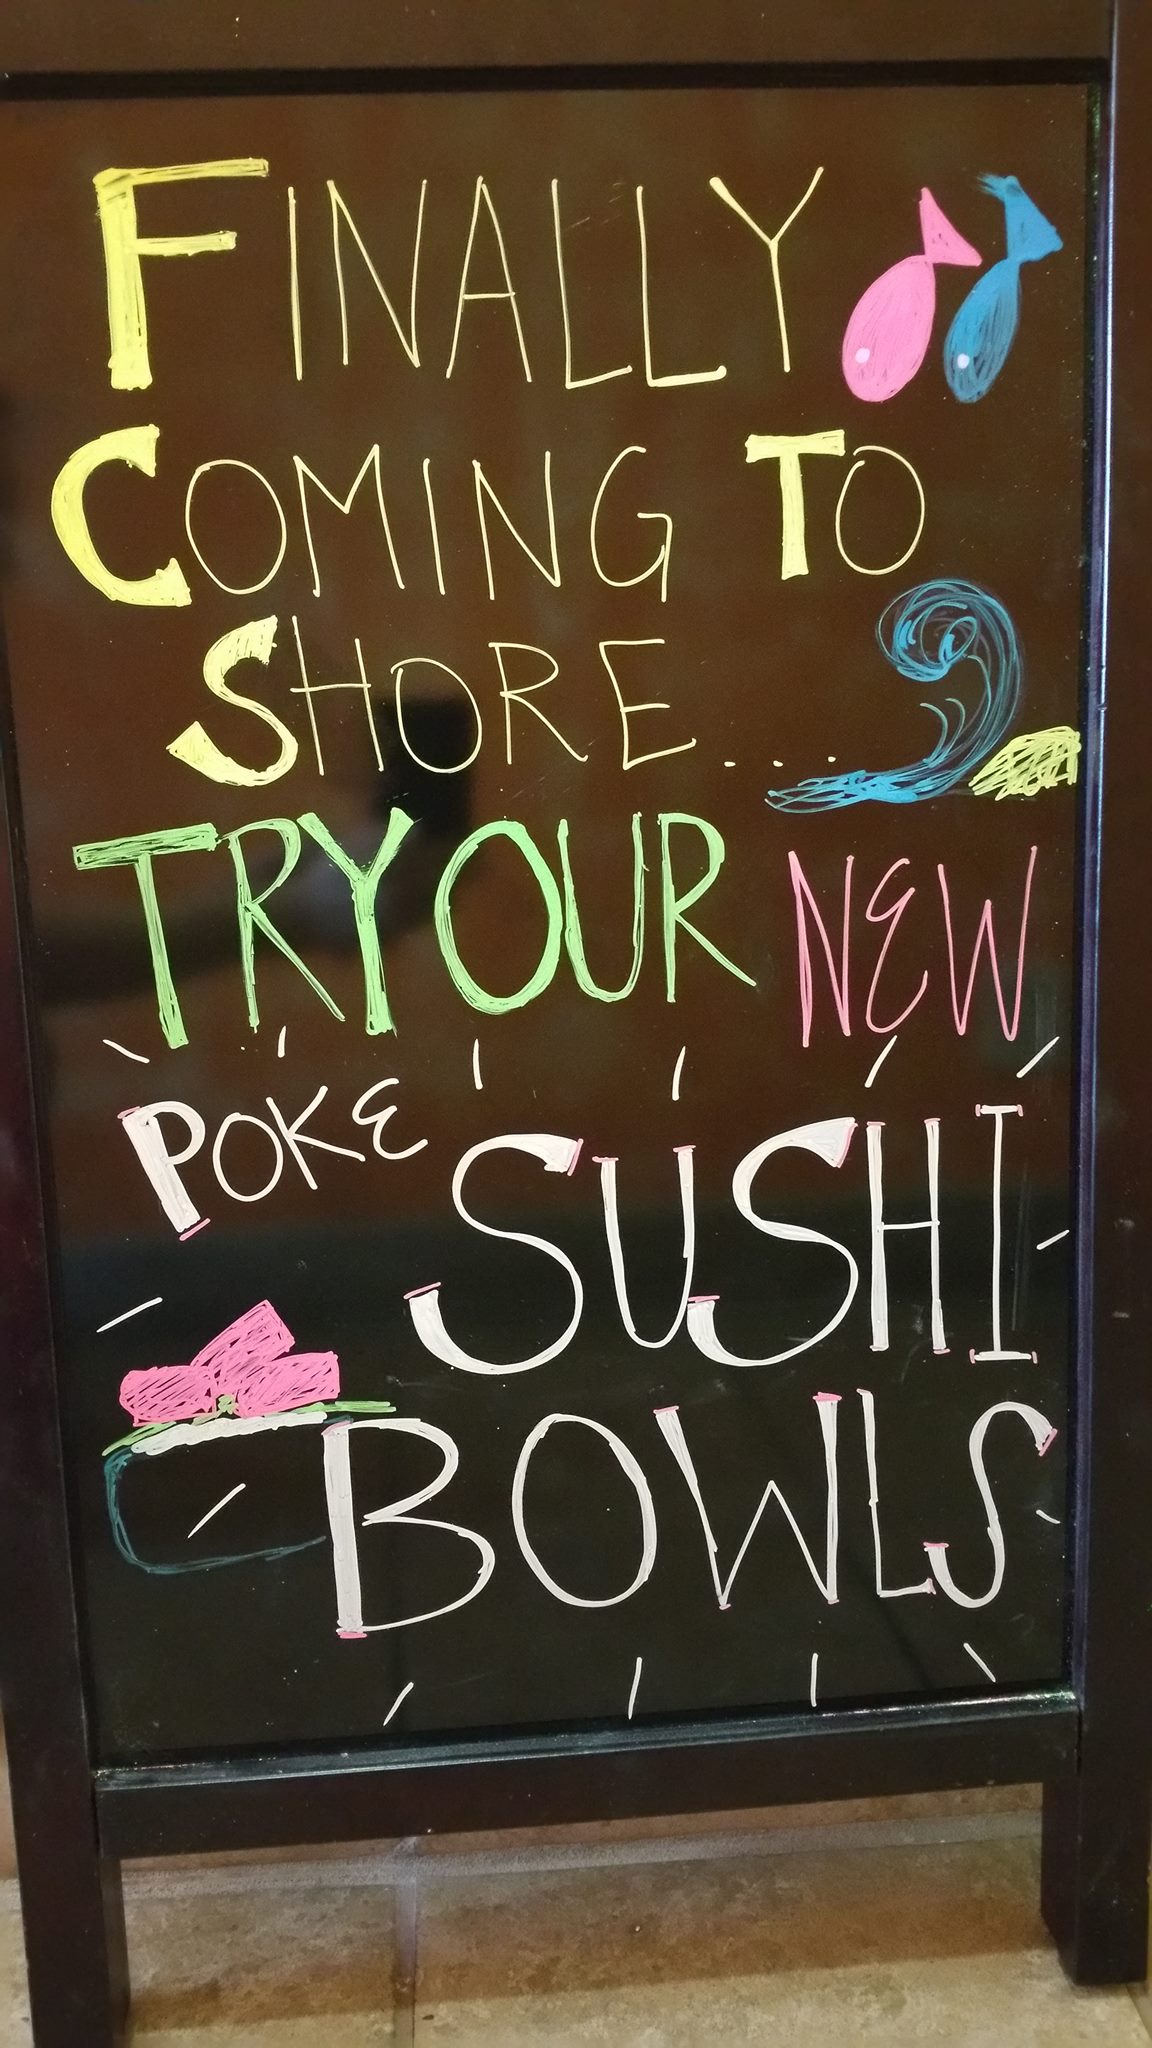 FINALLY
COMING TO
SHORE....
TRY OUR NEW
POKE SUSHI
BOWLS